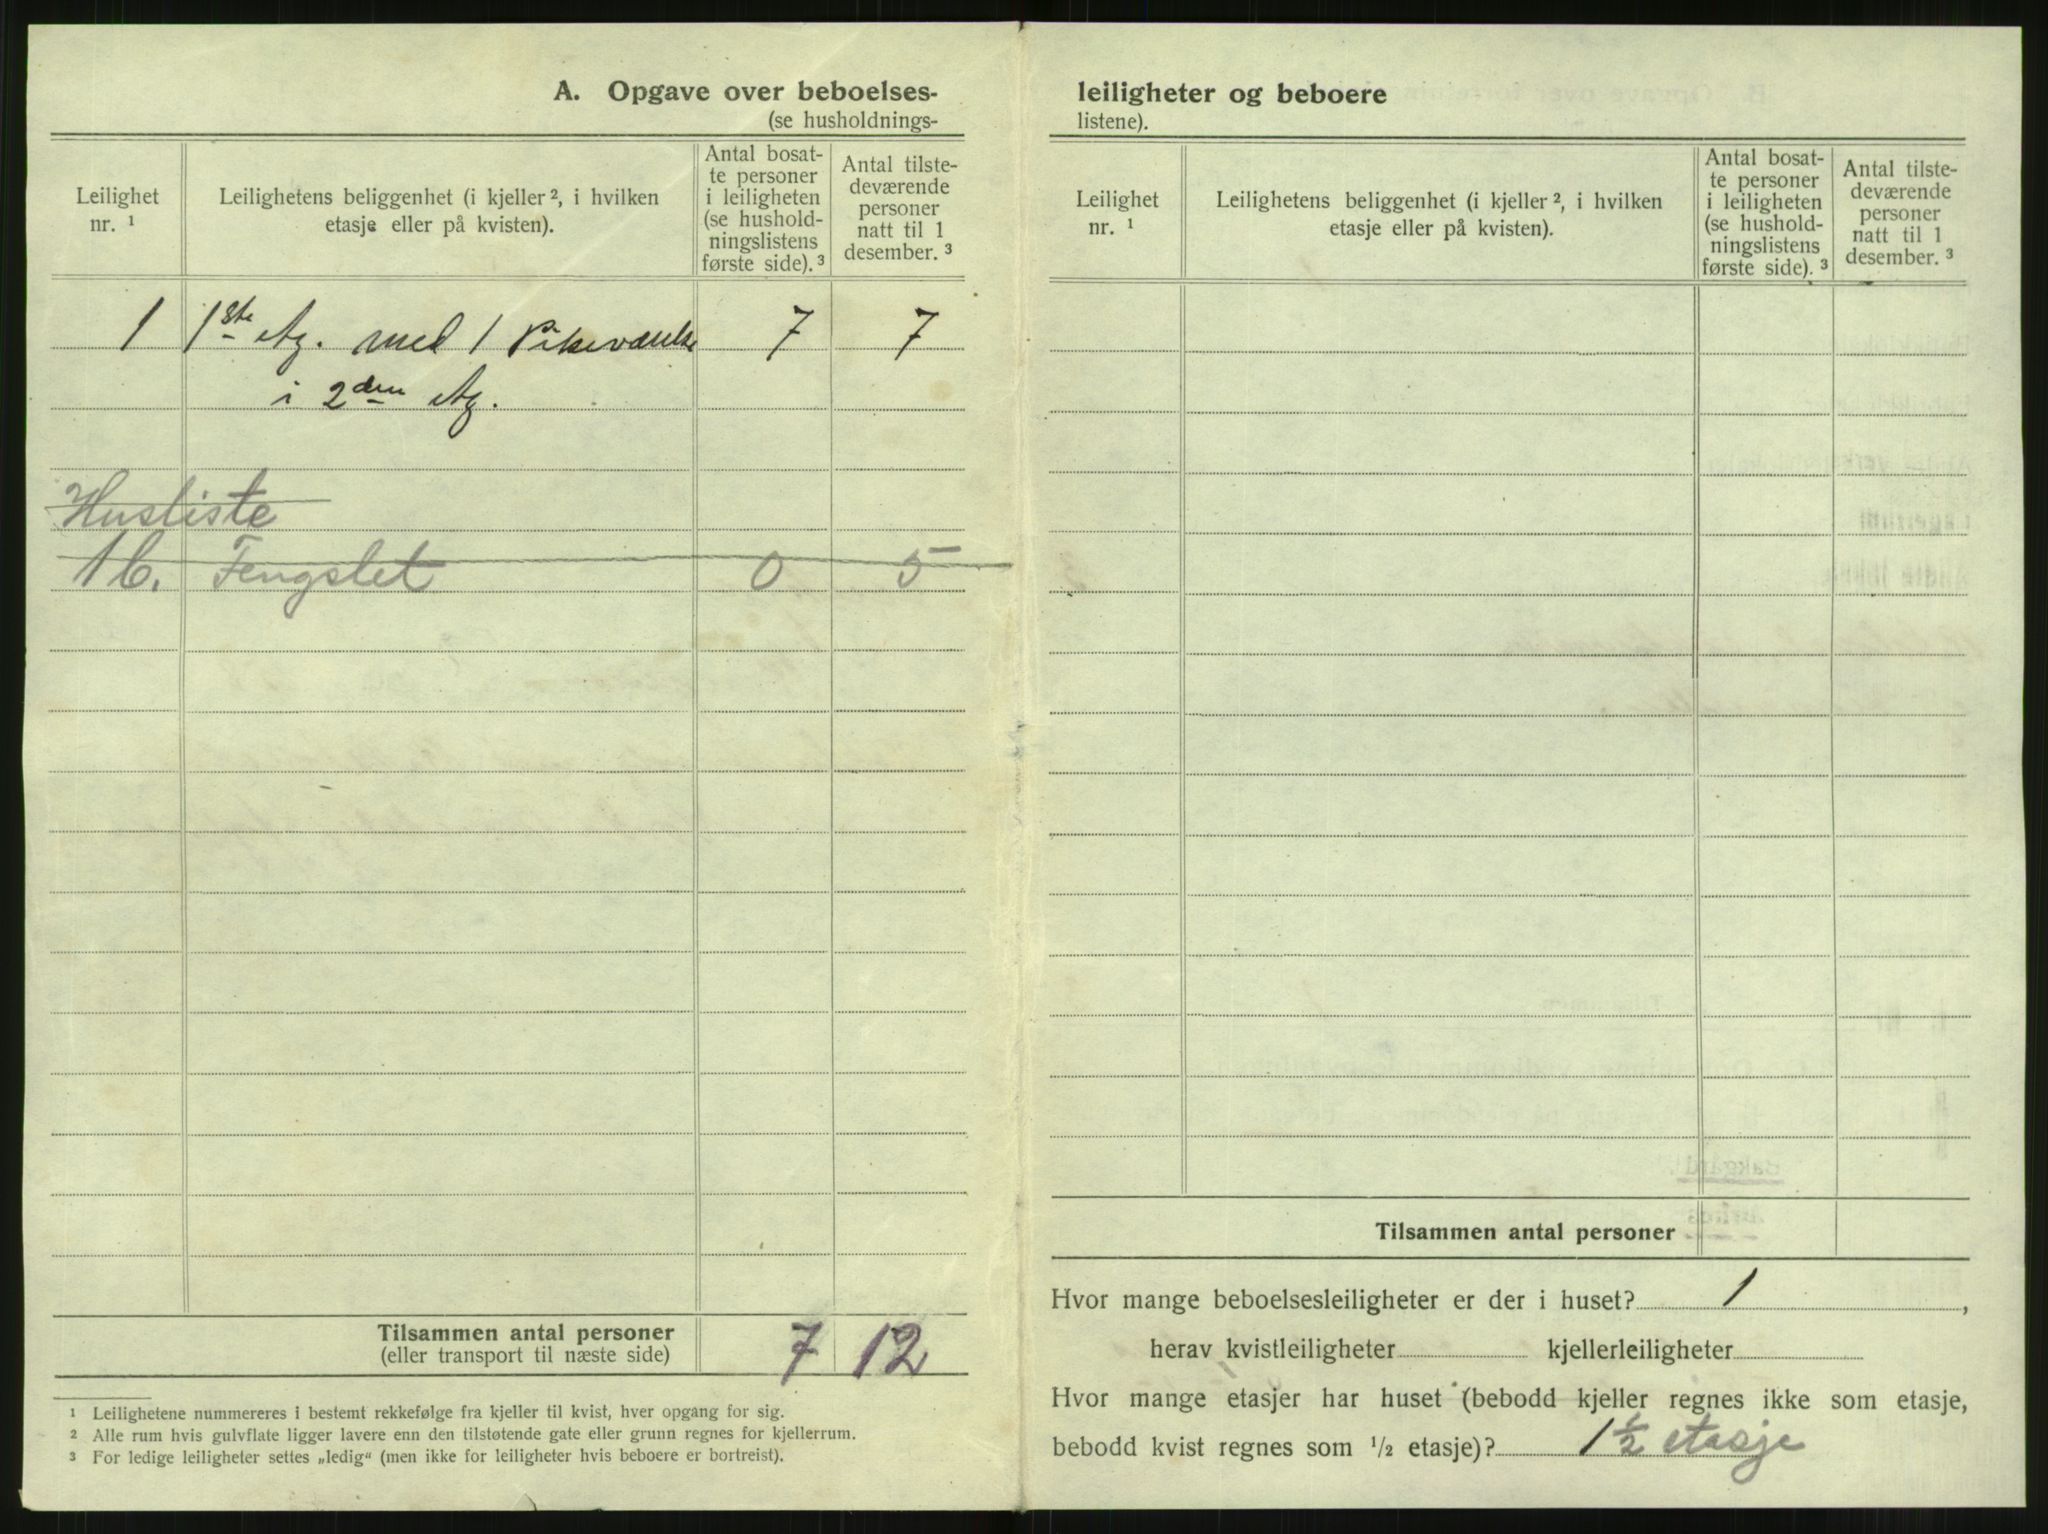 A. Opgave over beboelses-
(se husholdnings-
Leilighet
nr. ¹
Leilighetens beliggenhet (i kjeller ², i hvilken
etasje eller på kvisten).
Antal bosat-
te personer
i leiligheten
(se hushold-
ningslistens
første side). ³
Antal tilste-
deværende
personer
natt til 1
desember. ³
1 1ste Etg. med 1 Pikeværelse 7 7
i 2den Etg.
Husliste
1b. Fengslet 0 5
Tilsammen antal personer 7 12
(eller transport til næste side)
¹ Leilighetene nummereres i bestemt rekkefølge fra kjeller til kvist, hver opgang for sig.
² Alle rum hvis gulvflate ligger lavere enn den tilstøtende gate eller grunn regnes for kjellerrum.
³ For ledige leiligheter settes „ledig“ (men ikke for leiligheter hvis beboere er bortreist).
leiligheter og beboere
listene).
Leilighet
nr. ¹
Leilighetens beliggenhet (i kjeller ², i hvilken
etasje eller på kvisten).
Antal bosat-
te personer
i leiligheten
(se hushold-
ningslistens
første side). ³
Antal tilste-
deværende
personer
natt til 1
desember. ³
Tilsammen antal personer
Hvor mange beboelsesleiligheter er der i huset? 1,
herav kvistleiligheter kjellerleiligheter
Hvor mange etasjer har huset (bebodd kjeller regnes ikke som etasje,
bebodd kvist regnes som ½ etasje)? 1 ½ etasje